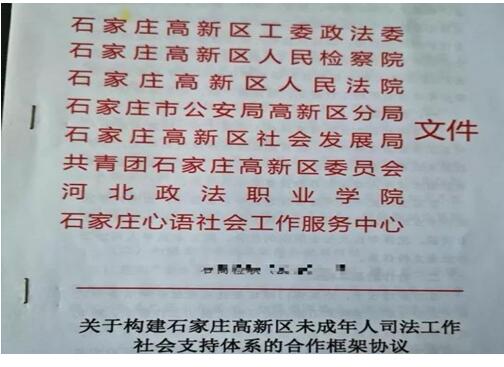 石家庄高新区工委政法委
石家庄高新区人民检察院
石家庄高新区人民法院
石家庄市公安局高新区分局
石家庄高新区社会发展局
共青团石家庄高新区委员会
河北政法职业学院
石家庄心语社会工作服务中心
文件
关于构建石家庄高新区未成年人司法工作
社会支持体系的合作框架协议